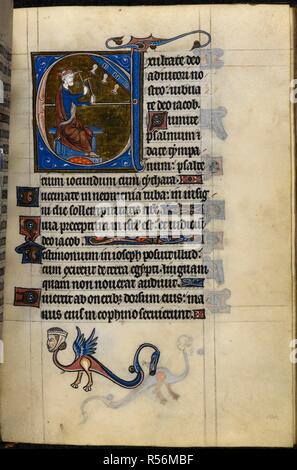 Exultate deo
adiutori no
stro: iubila
te deo iacob.
Sumite
psalmum et
date tympa
num: psalte
rium iocundum cum cythara.
Bucinate in neomenia tuba: in insigni
die sollempnitatis
Quia preceptum in israel est: et iudicium
deo iacob.
Testimonium in ioseph posuit illud:
cum exiret de terra egypti: linguam
quam non nouerat audiuit.
Diuertit ab oneribus dorsum eius: ma
nus eius in cophino seruierunt.
alamy
Image ID: R56MBF
www.alamy.com